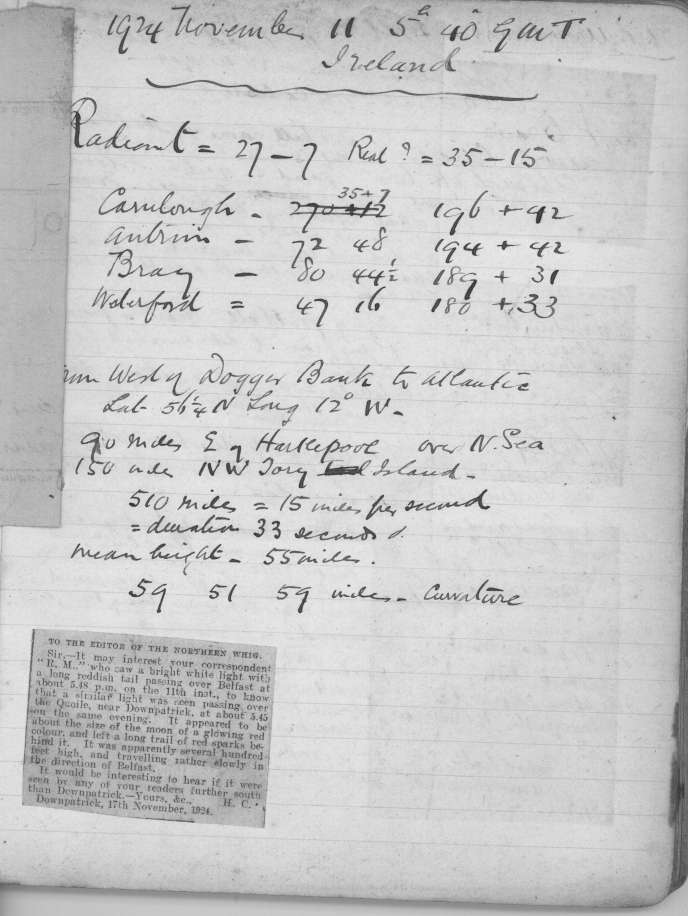 1924 November 11 5h 40 GMT
Ireland
Radiant = 27 - 7 Real ? = 35 - 15
35+7
Carnlough - 270 +12 196 + 42
Antrim - 72 48 194 + 42
Bray - 80 44½ 189 + 31
Waterford = 47 16 180 + 33
West of Dogger Bank to Atlantic
Lat 56¼ N Long 12° W -
90 miles E of Hartlepool over N. Sea
150 miles NW Tory Island -
510 miles = 15 miles per second
= duration 33 seconds
mean height - 55 miles.
59 51 59 miles - Curvature
TO THE EDITOR OF THE NORTHERN WHIG.
Sir,—It may interest your correspondent
"R. M.," who saw a bright white light with
a long reddish tail passing over Belfast at
about 5.48 p.m. on the 11th inst., to know
that a similar light was seen passing over
the Quoile, near Downpatrick, at about 5.45
on the same evening. It appeared to be
about the size of the moon of a glowing red
colour, and left a long trail of red sparks be-
hind it. It was apparently several hundred
feet high, and travelling rather slowly in
the direction of Belfast.
It would be interesting to hear if it were
seen by any of your readers further south
than Downpatrick.—Yours, &c., H. C.
Downpatrick, 17th November, 1924.